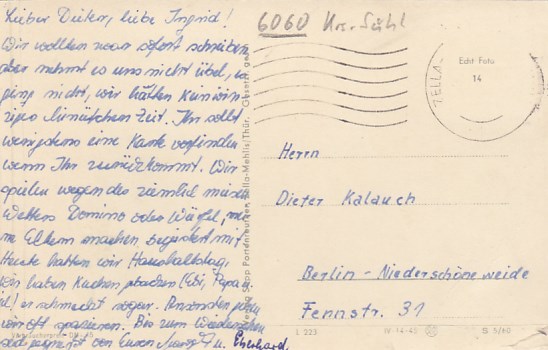 Lieber Dieter, liebe Ingrid!
Wir wollten zwar sofort schreiben,
aber nehmt es uns nicht übel, es
ging nicht, wir hätten kein win-
ziges Minütchen Zeit. Ihr sollt
wenigstens eine Karte vorfinden
wenn Ihr zurückkommt. Wir
spielen wegen des ziemlich miesen
Wetters Domino oder Würfel, mei-
ne Eltern machen begeistert mit
Heute hatten wir Haushaltstag,
wir haben Kuchen gebacken
er schmeckt sogar. Ansonsten gehen
wir oft spazieren. Bis zum Wiedersehen
seid gegrüßt von Euren u. Eberhard.
6060
Edit Foto
14
ZELLA-
Herrn
Dieter Kalauch
Berlin-Niederschöneweide
Fennstr. 31
Zella-Mehlis/Thür.
L 223
IV-14-45
S 5/60